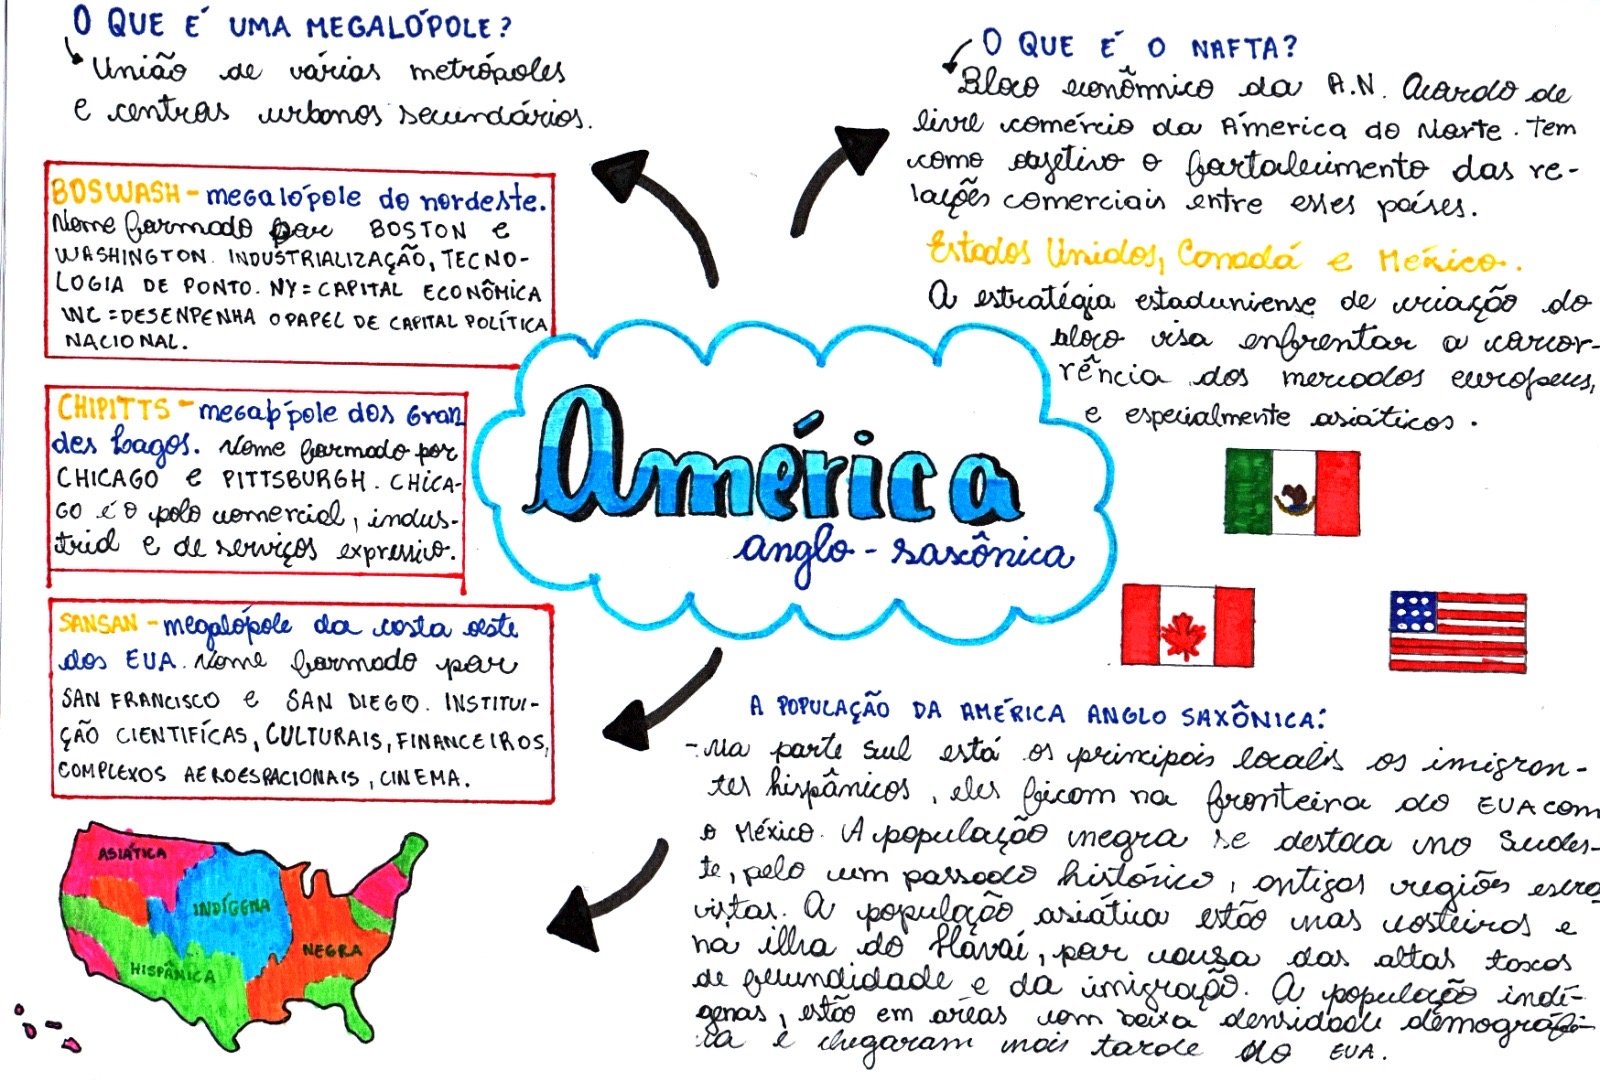 O QUE É UMA MEGALÓPOLE?
União de várias metrópoles
e centros urbanos secundários.
BOSWASH - megalópole do nordeste.
Nome formado por BOSTON e
WASHINGTON. INDUSTRIALIZAÇÃO, TECNO-
LOGIA DE PONTO. NY = CAPITAL ECONÔMICA
WC = DESENPENHA O PAPEL DE CAPITAL POLÍTICA
NACIONAL.
CHIPITTS - megalópole dos Gran
des Lagos. Nome formado por
CHICAGO e PITTSBURGH. CHICA-
GO é o polo comercial, indus-
trial e de serviços expressivo.
SANSAN - megalópole da costa oeste
dos EUA. Nome formado por
SAN FRANCISCO e SAN DIEGO. INSTITUI-
ÇÃO CIENTIFÍCAS, CULTURAIS, FINANCEIROS,
COMPLEXOS AEROESPACIONAIS, CINEMA.
ASIÁTICA
INDÍGENA
NEGRA
HISPÂNICA
América
anglo-saxônica
O QUE É O NAFTA?
Bloco econômico da A.N. Acordo de
livre comércio da América do Norte. Tem
como objetivo o fortaleicimento das re-
lações comerciais entre esses países.
Estados Unidos, Canadá e México.
A estratégia estaduniense de criação do
bloco visa enfrentar a concor-
rência dos mercados europeus,
e especialmente asiáticos.
A POPULAÇÃO DA AMÉRICA ANGLO SAXÔNICA:
- Na parte sul está os principais locais os imigran-
tes hispânicos, eles ficam na fronteira do EUA com
o México. A população negra se destaca no Sudes-
te, pelo um passado histórico, antigas regiões escra
vistas. A população asiática estão nas costeiros e
na ilha do Havaí, por causa das altas taxas
de fecundidade e da imigração. A população indí-
genas, estão em aréas com baixa densidade demográfi-
ca e chegaram mais tarde do EUA.